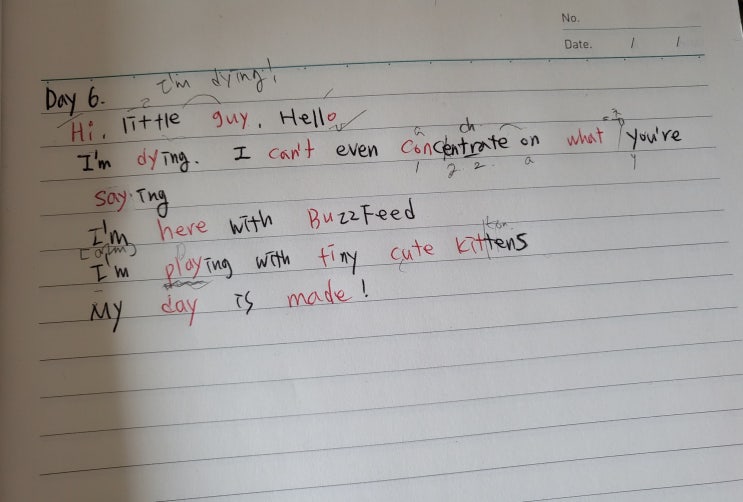 No.
Date. / /
I'm dying!
Day 6.
Hi. little guy. Hello
a ch
I'm dying. I can't even concentrate on what you're
1 2 2 a y
saying
I'm here with BuzzFeed
I'm playing with tiny cute kittens
My day is made!